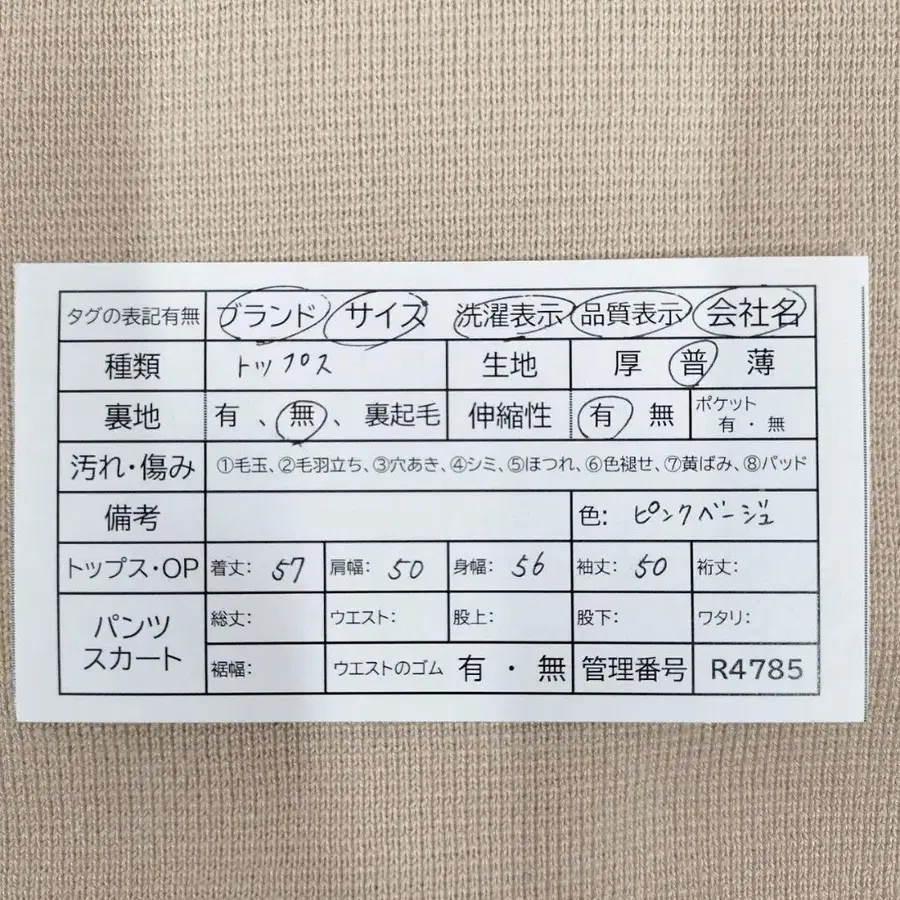 タグの表記有無 ブランド サイズ 洗濯表示 品質表示 会社名
種類 トップス 生地 厚 普 薄
裏地 有 、無、裏起毛 伸縮性 有 無 ポケット 有・無
汚れ・傷み ①毛玉、②毛羽立ち、③穴あき、④シミ、⑤ほつれ、⑥色褪せ、⑦黄ばみ、⑧パッド
備考 色: ピンクベージュ
トップス・OP 着丈: 57 肩幅: 50 身幅: 56 袖丈: 50 裄丈:
パンツ スカート
総丈: ウエスト: 股上: 股下: ワタリ:
裾幅: ウエストのゴム 有・無 管理番号 R4785